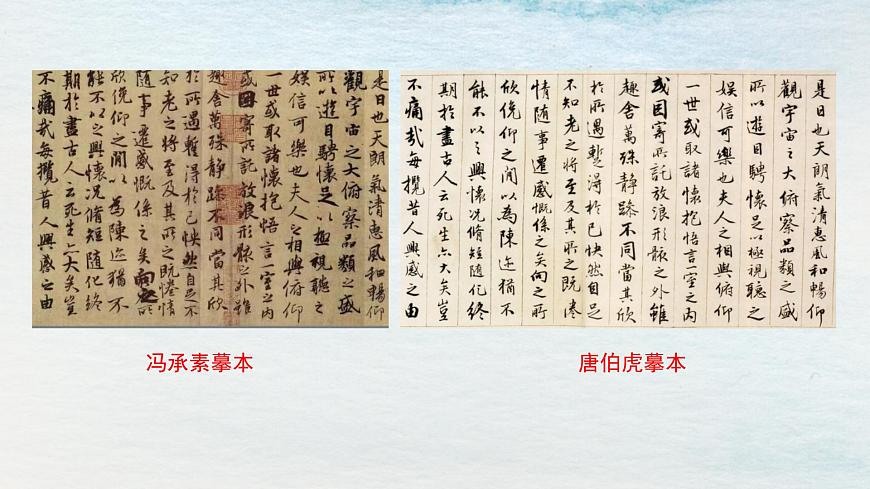 是日也天朗氣清惠風和暢仰
觀宇宙之大俯察品類之盛
所以遊目騁懷足以極視聽之
娛信可樂也夫人之相與俯仰
一世或取諸懷抱悟言一室之內
或因寄所託放浪形骸之外雖
趣舍萬殊靜躁不同當其欣
於所遇蹔得於己怏然自足不
知老之將至及其所之既惓情
隨事遷感慨係之矣向之所
欣俛仰之閒以為陳迹猶不
能不以之興懷況脩短隨化終
期於盡古人云死生亦大矣豈
不痛哉每攬昔人興感之由
是日也天朗氣清惠風和暢仰
觀宇宙之大俯察品類之盛
所以遊目騁懷足以極視聽之
娛信可樂也夫人之相與俯仰
一世或取諸懷抱悟言一室之內
或因寄所託放浪形骸之外雖
趣舍萬殊靜躁不同當其欣
於所遇蹔得於己快然自足
不知老之將至及其所之既惓
情隨事遷感慨係之矣向之所
欣俛仰之閒以為陳迹猶不
能不以之興懷況脩短隨化終
期於盡古人云死生亦大矣豈
不痛哉每攬昔人興感之由
冯承素摹本
唐伯虎摹本